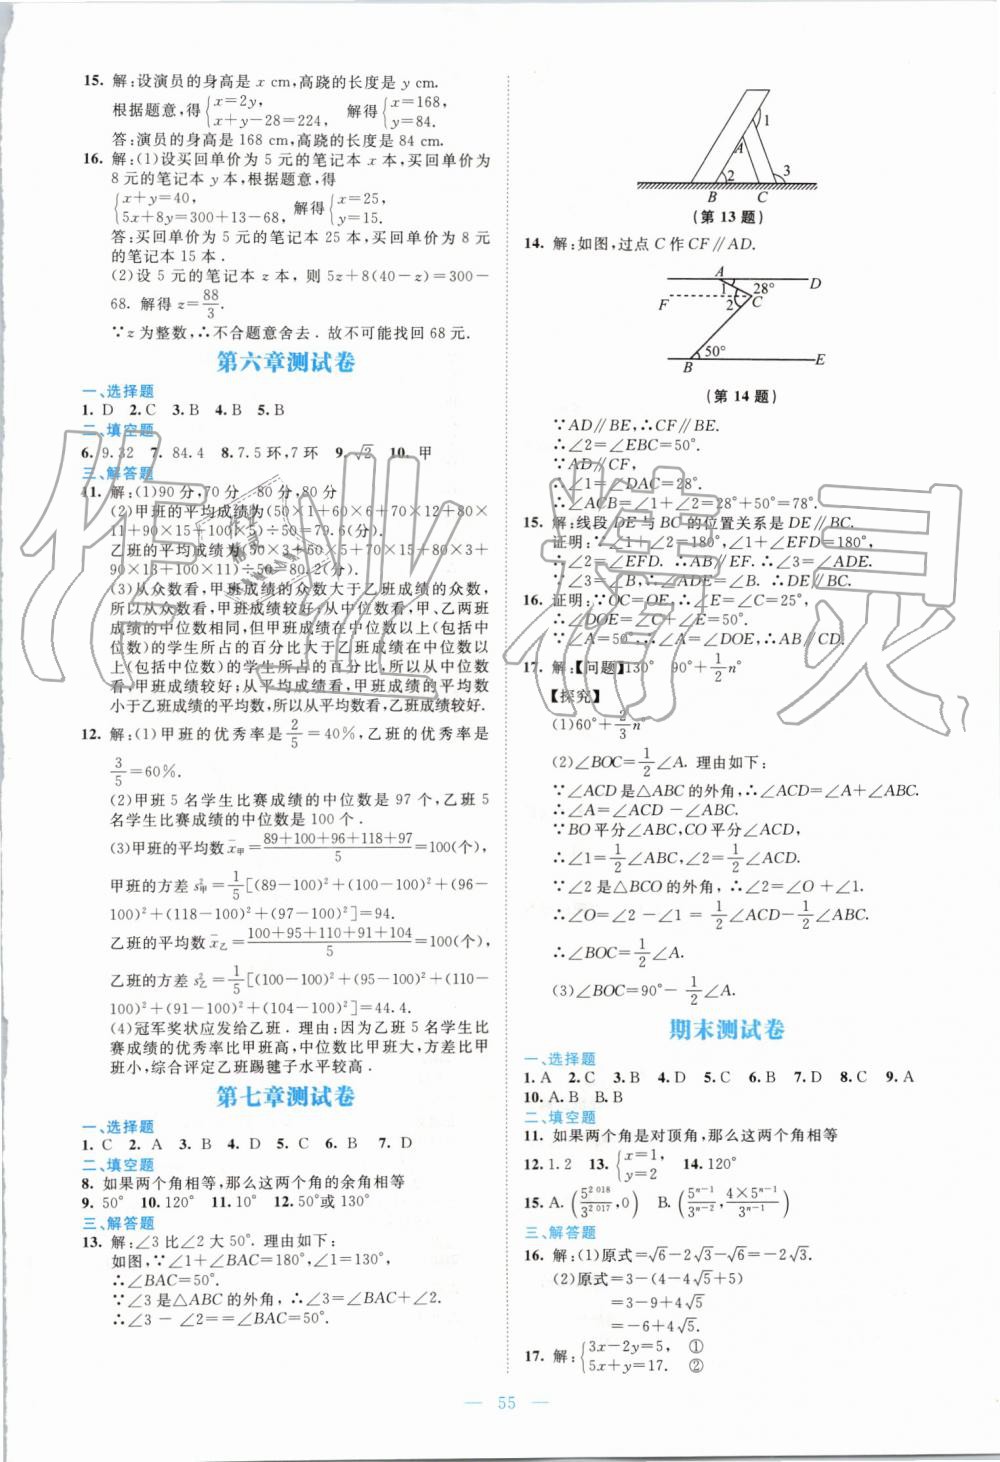 15. 解:设演员的身高是 x cm,高跷的长度是 y cm.
根据题意,得{x=2y, x+y-28=224, 解得{x=168, y=84.
答:演员的身高是 168 cm,高跷的长度是 84 cm.
16. 解:(1)设买回单价为 5 元的笔记本 x 本,买回单价为
8 元的笔记本 y 本,根据题意,得
{x+y=40, 5x+8y=300+13-68, 解得{x=25, y=15.
答:买回单价为 5 元的笔记本 25 本,买回单价为 8 元
的笔记本 15 本.
(2)设 5 元的笔记本 z 本,则 5z+8(40-z)=300-
68. 解得 z=88/3.
∵z 为整数,∴不合题意舍去.故不可能找回 68 元.
第六章测试卷
一、选择题
1. D 2. C 3. B 4. B 5. B
二、填空题
6. 9.32 7. 84.4 8. 7.5 环,7 环 9. √2 10. 甲
三、解答题
11. 解:(1)90 分,70 分 80 分,80 分
(2)甲班的平均成绩为(50×1+60×6+70×12+80×
11+90×15+100×5)÷50=79.6(分).
乙班的平均成绩为(50×3+60×5+70×15+80×3+
90×13+100×11)÷50=80.2(分).
(3)从众数看,甲班成绩的众数大于乙班成绩的众数,
所以从众数看,甲班成绩较好;从中位数看,甲、乙两班
成绩的中位数相同,但甲班成绩在中位数以上(包括中
位数)的学生所占的百分比大于乙班成绩在中位数以
上(包括中位数)的学生所占的百分比,所以从中位数
看,甲班成绩较好;从平均成绩看,甲班成绩的平均数
小于乙班成绩的平均数,所以从平均数看,乙班成绩较好.
12. 解:(1)甲班的优秀率是 2/5=40%,乙班的优秀率是
3/5=60%.
(2)甲班 5 名学生比赛成绩的中位数是 97 个,乙班 5
名学生比赛成绩的中位数是 100 个.
(3)甲班的平均数 x̄甲=(89+100+96+118+97)/5=100(个),
甲班的方差 s²甲=1/5[(89-100)²+(100-100)²+(96-
100)²+(118-100)²+(97-100)²]=94.
乙班的平均数 x̄乙=(100+95+110+91+104)/5=100(个),
乙班的方差 s²乙=1/5[(100-100)²+(95-100)²+(110-
100)²+(91-100)²+(104-100)²]=44.4.
(4)冠军奖状应发给乙班.理由:因为乙班 5 名学生比
赛成绩的优秀率比甲班高,中位数比甲班大,方差比甲
班小,综合评定乙班踢毽子水平较高.
第七章测试卷
一、选择题
1. C 2. A 3. B 4. D 5. C 6. B 7. D
二、填空题
8. 如果两个角相等,那么这两个角的余角相等
9. 50° 10. 120° 11. 10° 12. 50°或 130°
三、解答题
13. 解:∠3 比∠2 大 50°. 理由如下:
如图,∵∠1+∠BAC=180°,∠1=130°,
∴∠BAC=50°.
∵∠3 是△ABC 的外角,∴∠3=∠BAC+∠2.
∴∠3-∠2==∠BAC=50°.
1
A
2
3
B C
(第 13 题)
14. 解:如图,过点 C 作 CF∥AD.
A D
1 28°
F 2 C
50°
B E
(第 14 题)
∵AD∥BE,∴CF∥BE.
∴∠2=∠EBC=50°.
∵AD∥CF,
∴∠1=∠DAC=28°.
∴∠ACB=∠1+∠2=28°+50°=78°.
15. 解:线段 DE 与 BC 的位置关系是 DE∥BC.
证明:∵∠1+∠2=180°,∠1+∠EFD=180°,
∴∠2=∠EFD. ∴AB∥EF. ∴∠3=∠ADE.
∵∠3=∠B,∴∠ADE=∠B. ∴DE∥BC.
16. 证明:∵OC=OE,∴∠E=∠C=25°,
∴∠DOE=∠C+∠E=50°.
∵∠A=50°,∴∠A=∠DOE,∴AB∥CD.
17. 解:【问题】130° 90°+1/2n°
【探究】
(1)60°+2/3n°
(2)∠BOC=1/2∠A. 理由如下:
∵∠ACD 是△ABC 的外角,∴∠ACD=∠A+∠ABC.
∴∠A=∠ACD-∠ABC.
∵BO 平分∠ABC,CO 平分∠ACD,
∴∠1=1/2∠ABC,∠2=1/2∠ACD.
∵∠2 是△BCO 的外角,∴∠2=∠O+∠1.
∴∠O=∠2-∠1=1/2∠ACD-1/2∠ABC.
∴∠BOC=1/2∠A.
(3)∠BOC=90°-1/2∠A.
期末测试卷
一、选择题
1. A 2. C 3. B 4. D 5. C 6. B 7. D 8. C 9. A
10. A. B B. B
二、填空题
11. 如果两个角是对顶角,那么这两个角相等
12. 1.2 13. {x=1, y=2 14. 120°
15. A. (5^2018/3^2017,0) B. (5^(n-1)/3^(n-2),4×5^(n-1)/3^(n-1))
三、解答题
16. 解:(1)原式=√6-2√3-√6=-2√3.
(2)原式=3-(4-4√5+5)
=3-9+4√5
=-6+4√5.
17. 解:{3x-2y=5, ① 5x+y=17. ②
55
作业精灵